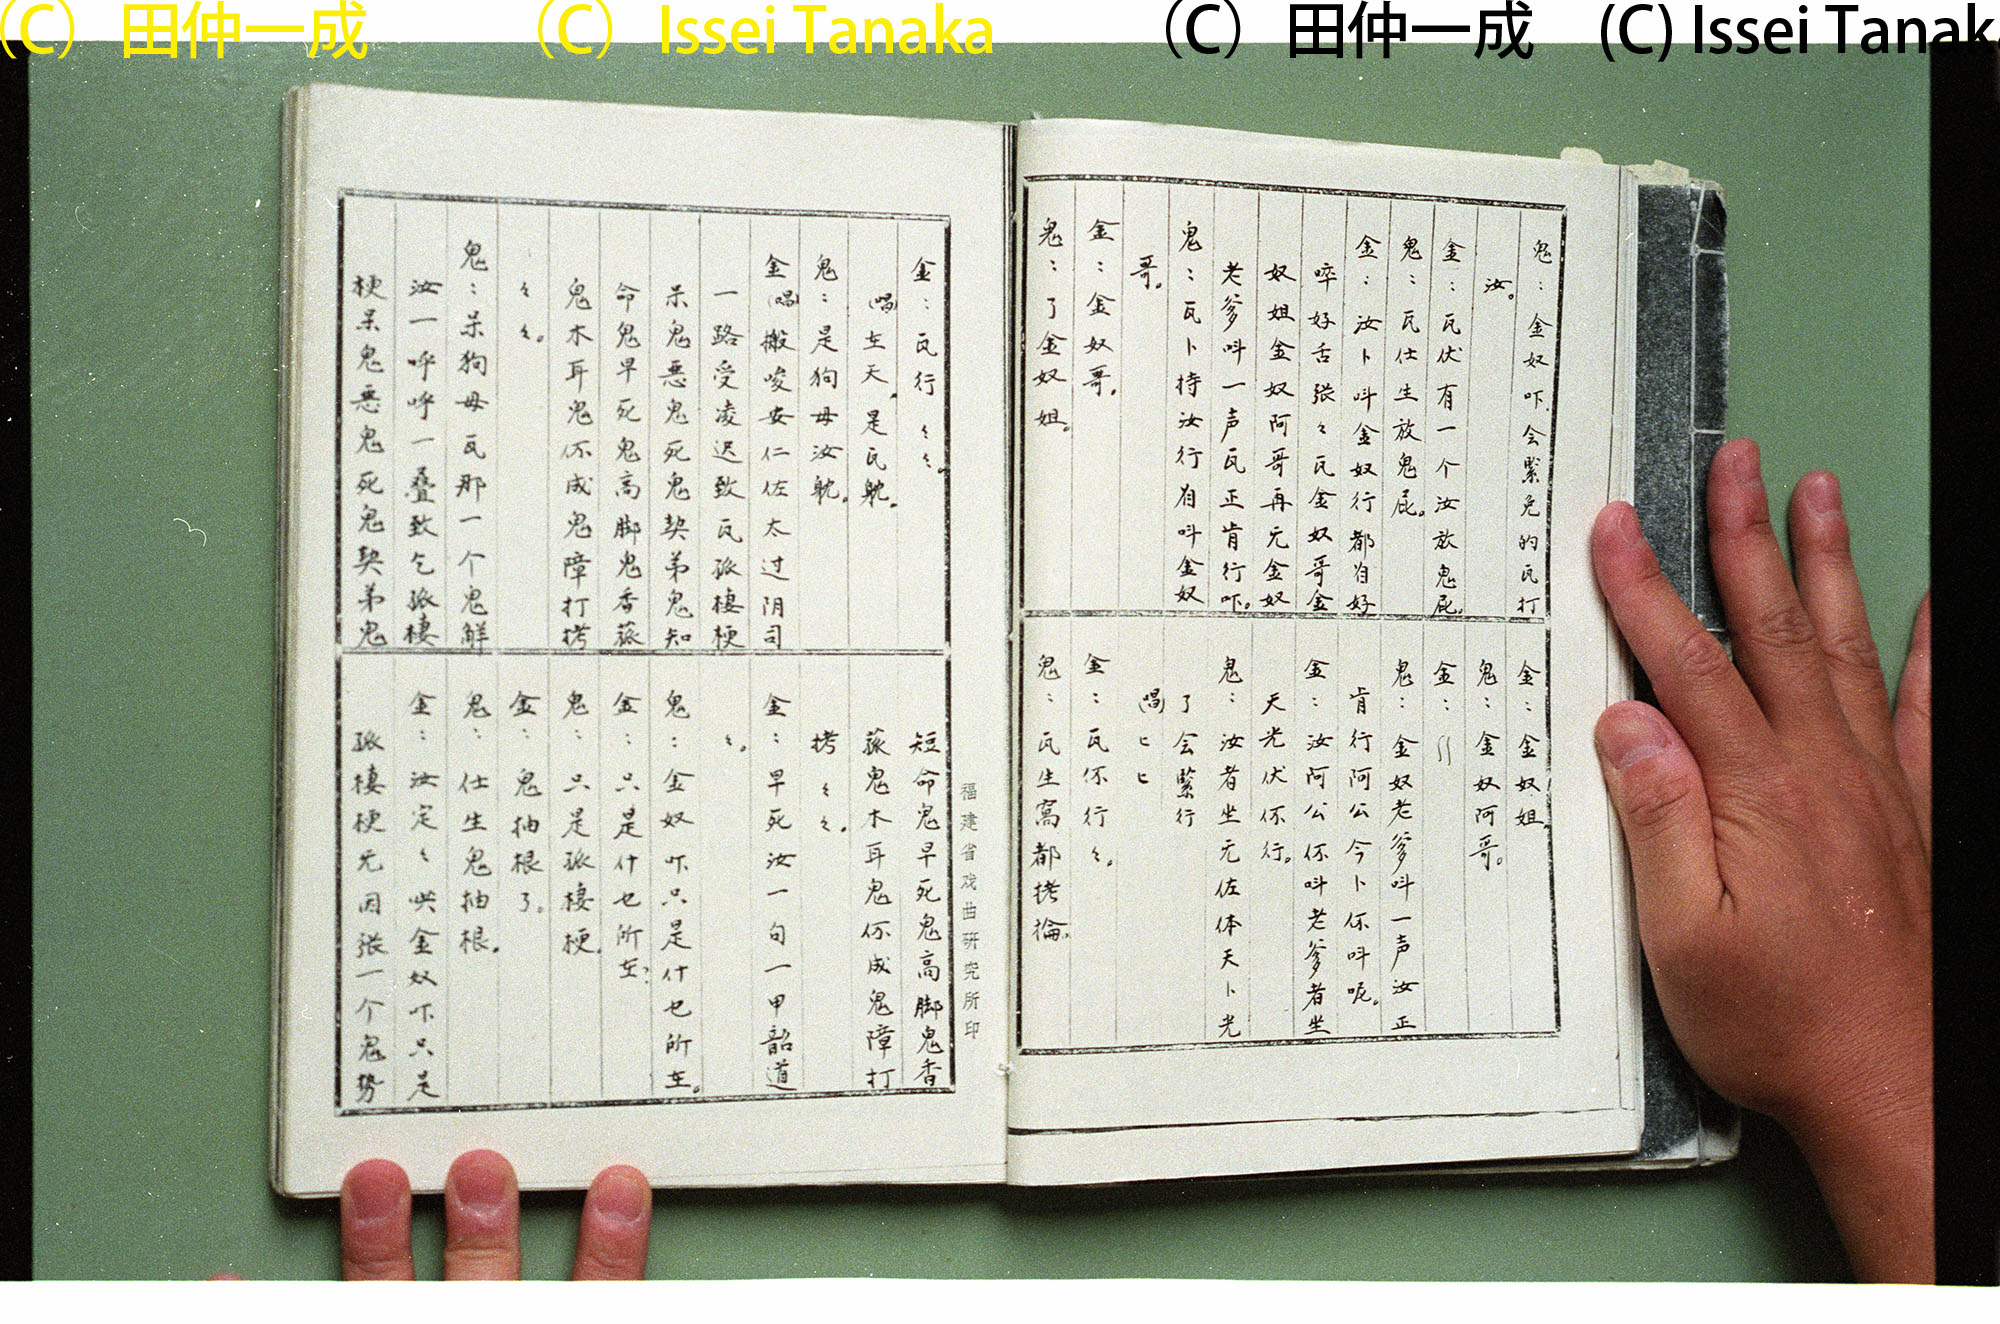 (C) 田仲一成 (C) Issei Tanaka (C) 田仲一成 (C) Issei Tanaka
鬼：金奴吓，会緊兔的瓦打
汝。
金：瓦伏有一个汝放鬼屁。
鬼：瓦仕生放鬼屁。
金：汝卜呌金奴行都自好
啐好舌张々瓦金奴哥金
奴姐金奴阿哥再元金奴
老爹呌一声瓦正肯行吓。
鬼：瓦卜持汝行自呌金奴
哥。
金：金奴哥。
鬼：了金奴姐。
金：金奴姐
鬼：金奴阿哥。
金：
鬼：金奴老爹呌一声汝正
肯行阿公今卜伓呌呢。
金：汝阿公伓呌老爹者坐
天光伏伓行。
鬼：汝者坐无佐体天卜光
了会緊行
(唱)匕匕
金：瓦伓行々。
鬼：瓦生窩都拷
金：瓦行々々。
(唱)在天，是瓦躭。
鬼：是狗母汝躭。
金(唱)搬唆安仁佐太过阴司
一路受凌迟致瓦孤棲梗
呆鬼恶鬼死鬼契弟鬼知
命鬼早死鬼高脚鬼香菰
鬼木耳鬼伓成鬼障打拷
々々。
鬼：呆狗母瓦那一个鬼觧
汝一呼呼一叠致乞孤棲
梗呆鬼恶鬼死鬼契弟鬼
短命鬼早死鬼高脚鬼香
菰鬼木耳鬼伓成鬼障打
拷々々。
金：早死汝一句一甲韶道
々。
鬼：金奴吓只是什乜所在。
金：只是什乜所在?
鬼：只是孤棲梗。
金：鬼抽根了。
鬼：仕生鬼抽根。
金：汝定々咲金奴吓只是
孤棲梗无因张一个鬼势
福建省戏曲研究所印